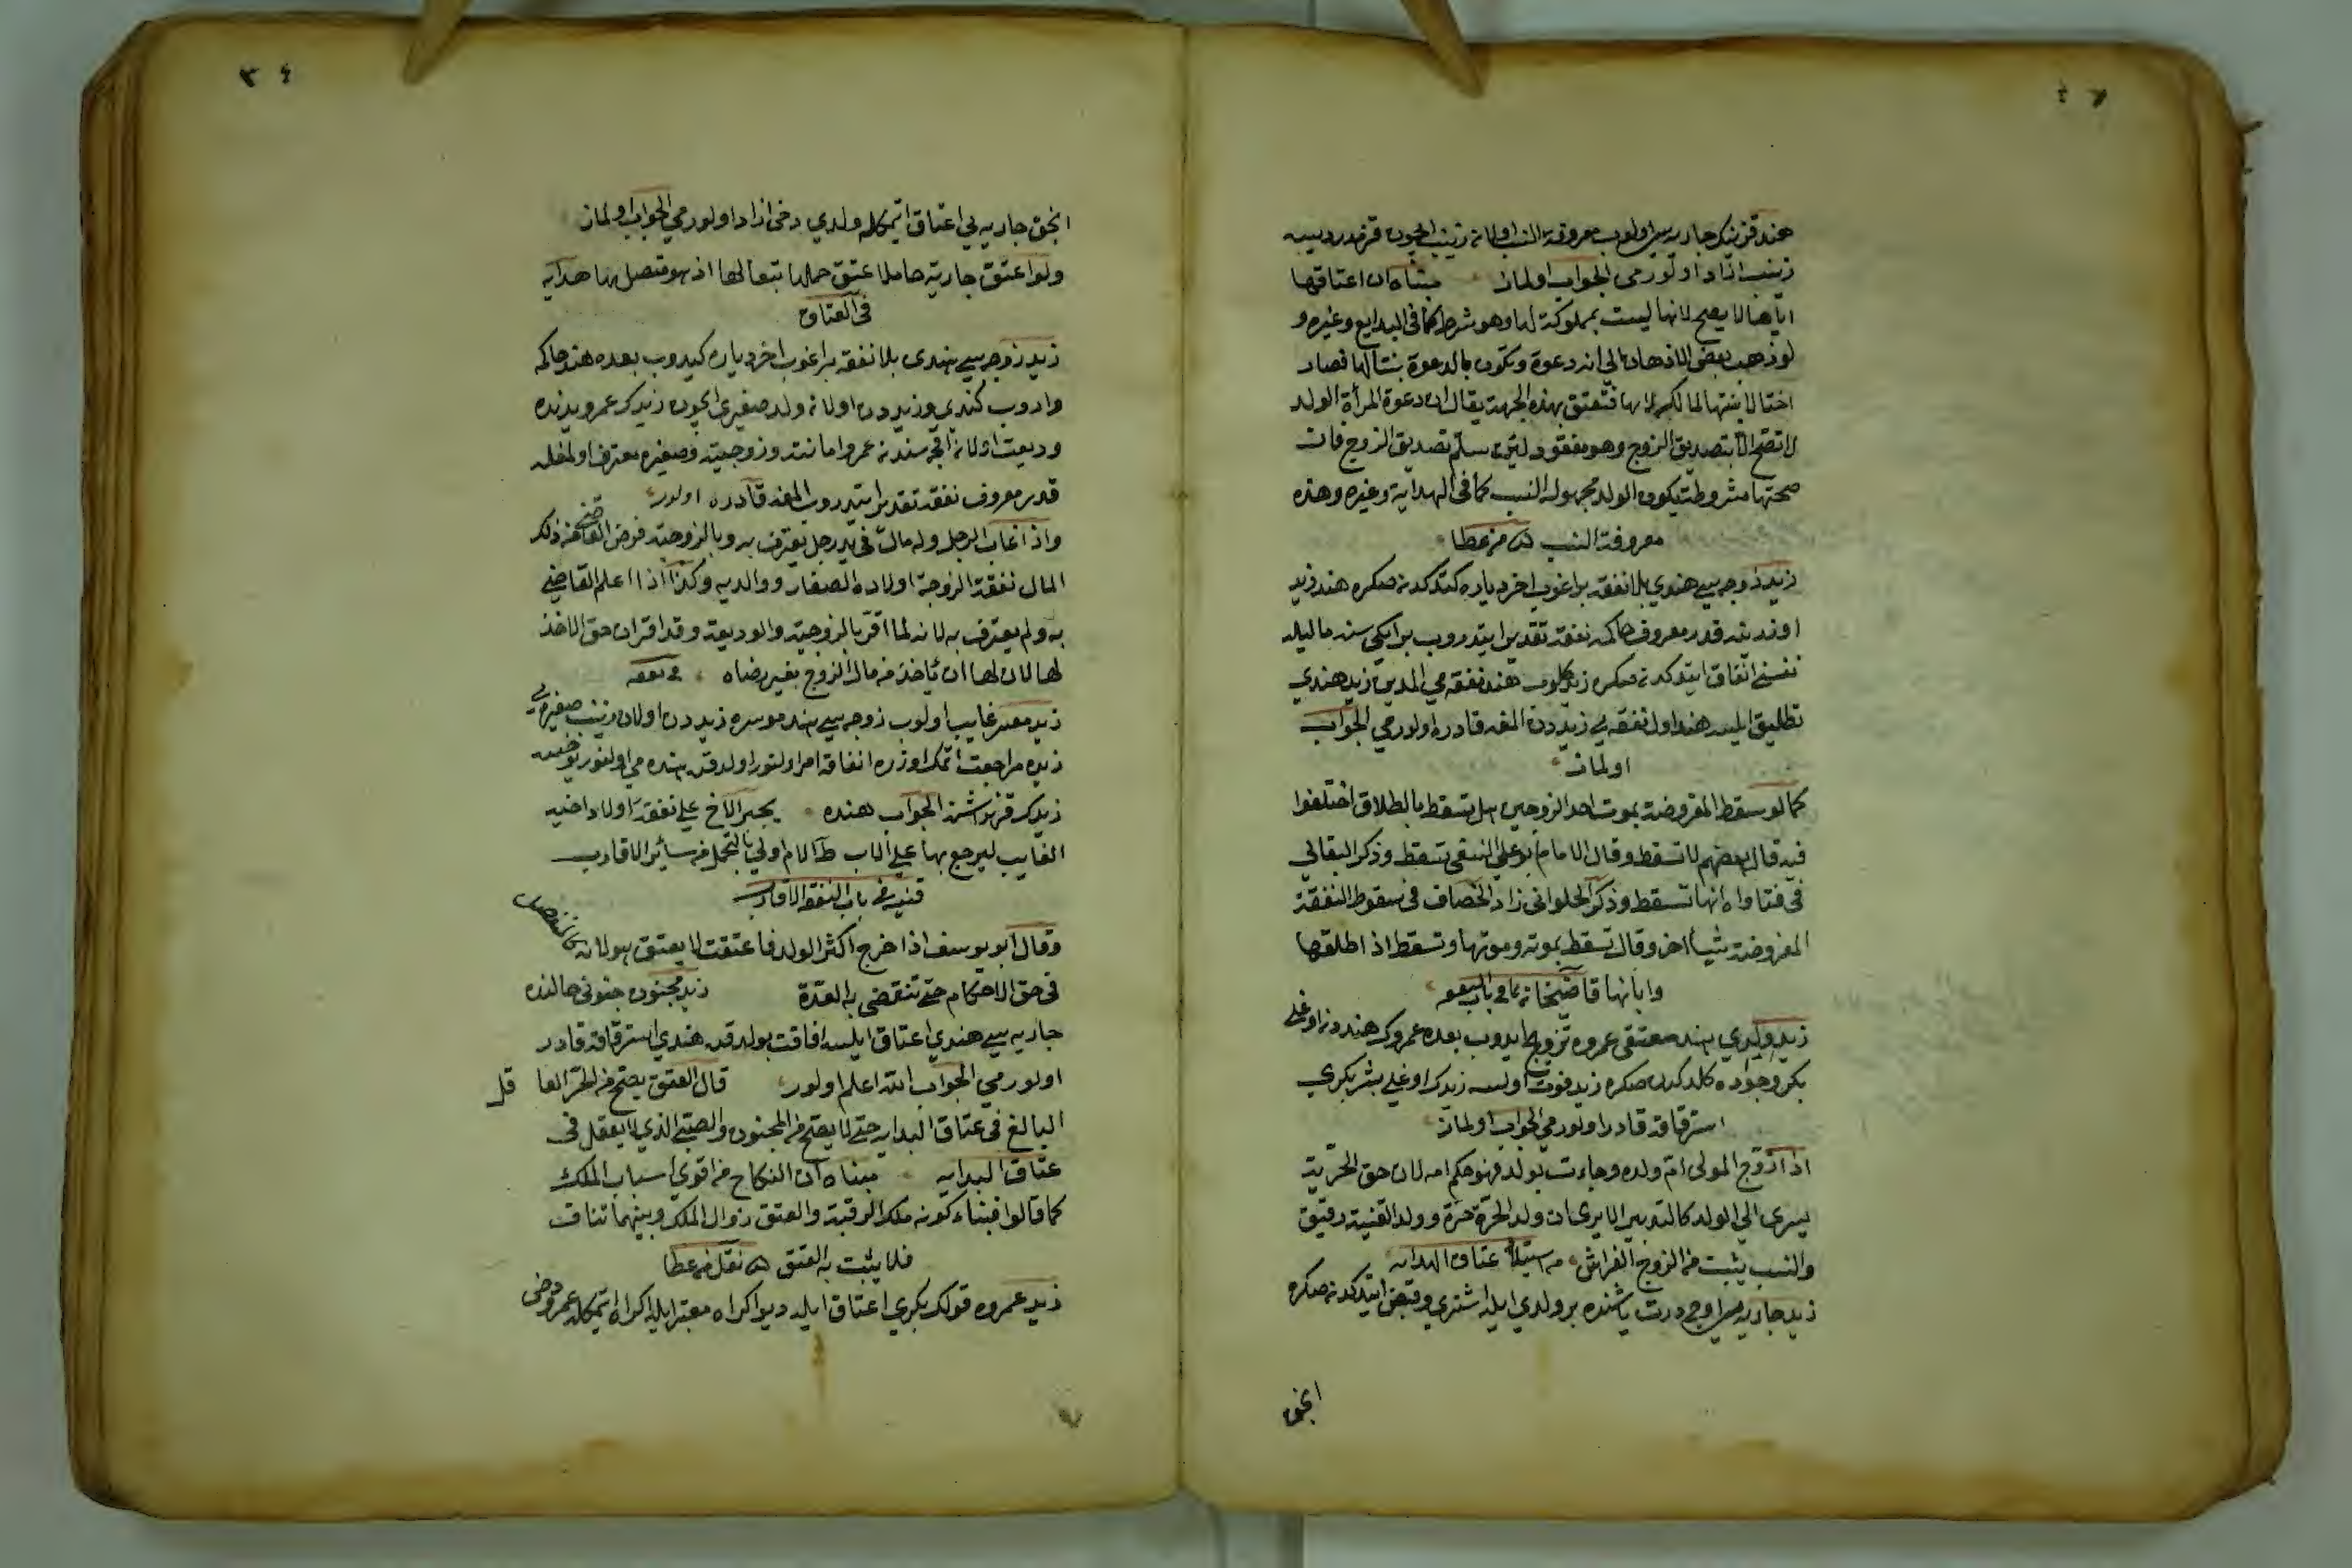 هند قزينك جاريه سي اولوب معروفة النسب اولان زينب ايچون قزمدر ديسه
زينب ازاد اولورمي الجواب اولماز مبناه ان اعتاقها
اياها لا يصح لانها ليست بمملوكة لها وهو شرط كما في البدايع وغيره و
لو ذهب بعض الاذهان الي انه دعوة وتكون بالدعوة بنتا لها فصار
اختا لابنتها لمالكه لها فتعتق بهذه الجهة يقال ان دعوة المرأة الولد
لا تصح الا بتصديق الزوج وهو مفقود لئن سلم تصديق الزوج فان
صحتها مشروطة بكون الولد مجهولة النسب كما في الهداية وغيره وهذه
معروفة النسب من عطا
زيد زوجه سي هندي بلا نفقه براغوب اخر دياره كتدكدنصكره هند زيد
اوزرينه قدر معروف حاكمه نفقه تقدير ايتدروب بر ايكي سنه ماليله
نفسنه انفاق ايتدكدنصكره زيد كلوب هند نفقه مي المدين زيد هندي
تطليق ايلسه هند اول نفقه يي زيددن المغه قادره اولورمي الجواب
اولماز
كما لو سقط المفروضة بموت احد الزوجين هل تسقط بالطلاق اختلفوا
فيه قال بعضهم لا تسقط وقال الامام ابو علي النسفي تسقط وذكر البقالي
في فتاواه انها تسقط وذكر الحلواني زاد الخصاف في سقوط النفقة
المفروضة شيأ اخر وقال تسقط بموته وموتها وتسقط اذا طلقها
وابانها قاضيخان في باب النفقه
زيد ولدي هند معتقي عمروه تزويج ايدوب بعده عمروك هنددن اوغلي
بكر وجوده كلدكدنصكره زيد فوت اولسه زيدك اوغلي بشر بكري
استرقاقه قادر اولورمي الجواب اولماز
اذا زوج المولى ام ولده وجاءت بولد فهو حكم امه لان حق الحرية
يسري الى الولد كالتدبير الا يرى ان ولد الحرة حرة وولد القنية رقيق
والنسب يثبت من الزوج الفراش من استيلاد عتاق الهدايه
زيد جاريه سي اوچ درت ياشنده بر ولدي ايله اشتري وقبض ايتدكدنصكره
انجق
انجق جاريه يي اعتاق ايتمكله ولدي دخي ازاد اولورمي الجواب اولماز
ولو اعتق جارية حاملا عتق حملها تبعا لها اذ هو متصل بها هدايه
في العتاق
زيد زوجه سي هندي بلا نفقه براغوب اخر دياره كيدوب بعده هند حاكمه
واروب كندي وزيددن اولان ولد صغيري ايچون زيدك عمرو يدنده
وديعت اولان اقچه سندن عمرو امانته وزوجيته وصغيره معترف اولمغله
قدر معروف نفقه تقدير ايتدروب المغه قادره اولور
واذا غاب الرجل وله مال في يد رجل يعترف به وبالزوجية فرض القاضي في ذلك
المال نفقة الزوجة اولاده الصغار ووالديه وكذا اذا اعلم القاضي
به ولم يعترف به لانه لما اقر بالزوجية والوديعة وقد اقر ان حق الاخذ
لها لان لها ان يأخذ من مال الزوج بغير رضاه في نفقه
زيد معسر غايب اولوب زوجه سي هند موسره زيددن اولان زينب صغيره يي
زيده مراجعت ايتمك اوزره انفاقه امر اولنور اولدقده هنده مي اولنور يوخسه
زيدك قرنداشنه الجواب هنده يجبر الاخ علي نفقة اولاد اخيه
الغايب ليرجع بها علي الاب ط الام اولي بالتحمل من سائر الاقارب
قنيه في باب النفقه الاقارب
وقال ابو يوسف اذا خرج اكثر الولد فاعتقت لا يعتق هو لانه كالمنفصل
في حق الاحكام حتي تنقضي به العدة زيد مجنون جنوني حالنده
جاريه سي هندي اعتاق ايلسه افاقت بولدقده هندي استرقاقه قادر
اولورمي الجواب الله اعلم اولور قال العتق يصح من الحر العاقل
البالغ في عتاق الهدايه حتي لا يصح من المجنون والصبي الذي لا يعقل في
عتاق الهدايه مبناه ان النكاح من اقوي اسباب الملك
كما قالوا فبناء كونه ملك الرقبة والعتق زوال الملك وبينهما تناف
فلا يثبت به العتق نقل من عطا
زيد عمروه قولك بكري اعتاق ايله ديو اكراه معتبر ايله اكراه ايتمكله عمرو دخي